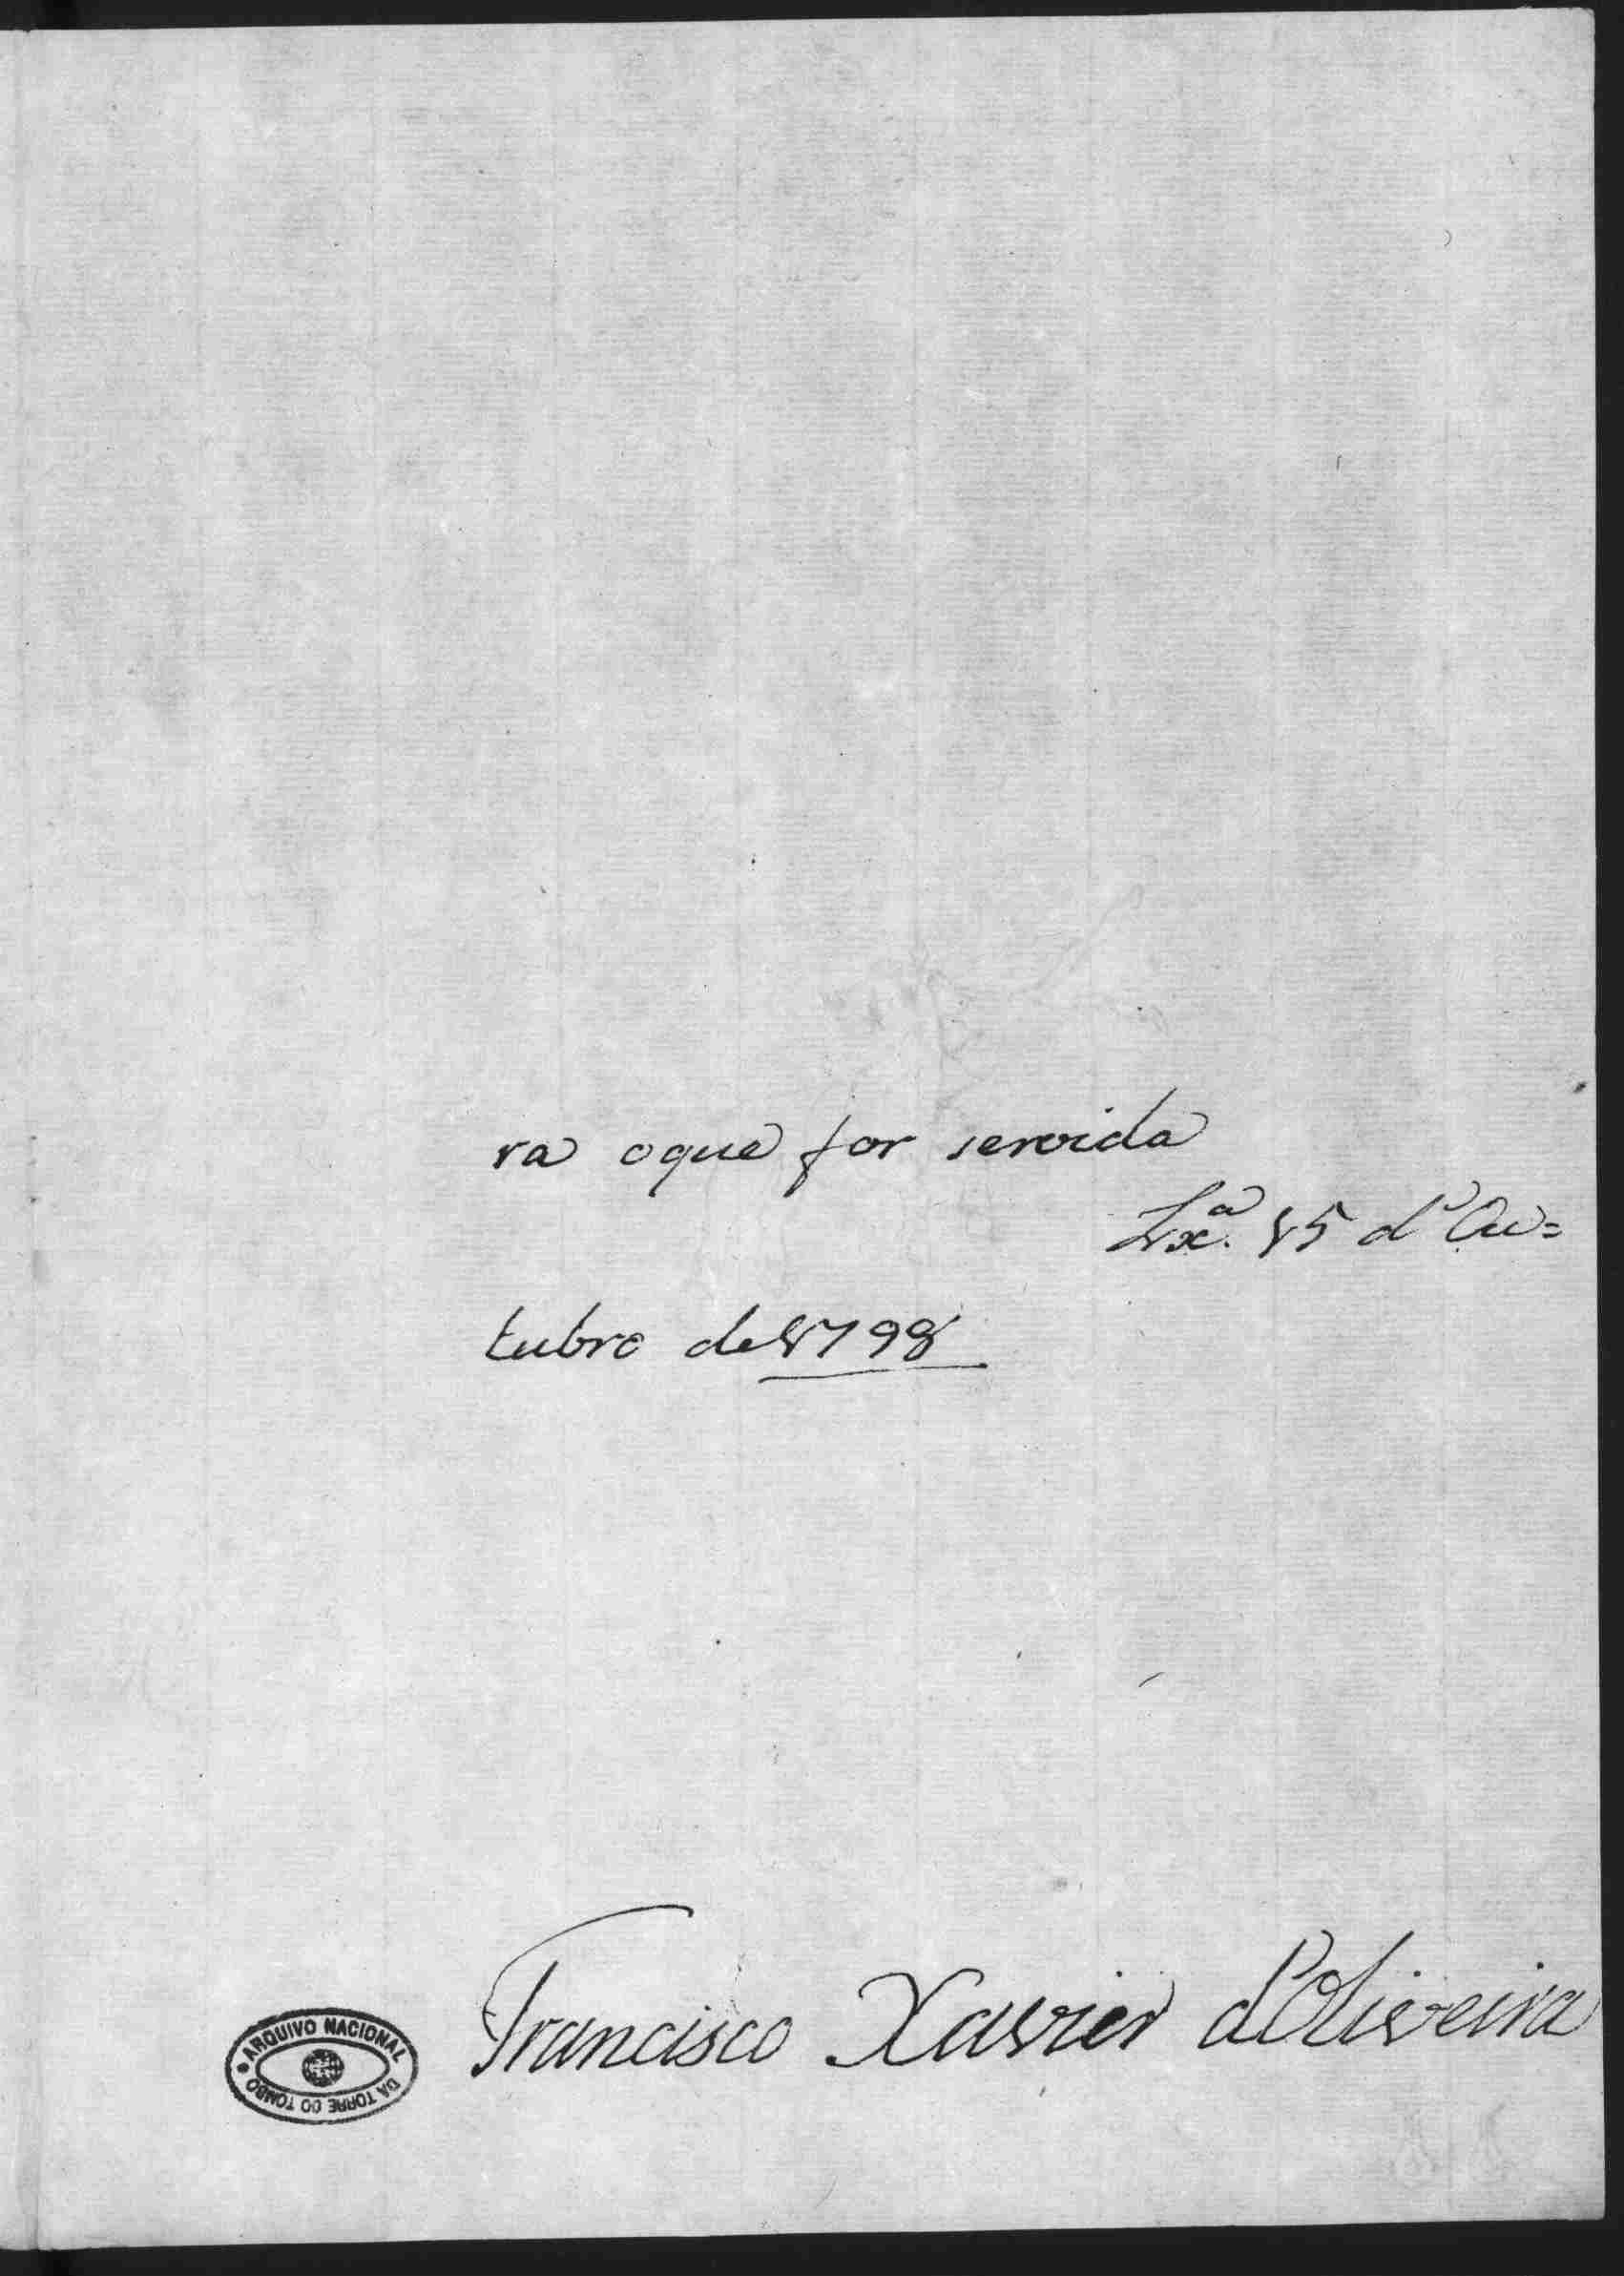 ra oque for servida
Lxª. 15 d'Ou=
tubro de 1798
Francisco Xavier d'Oliveira
ARQUIVO NACIONAL
DA TORRE DO TOMBO